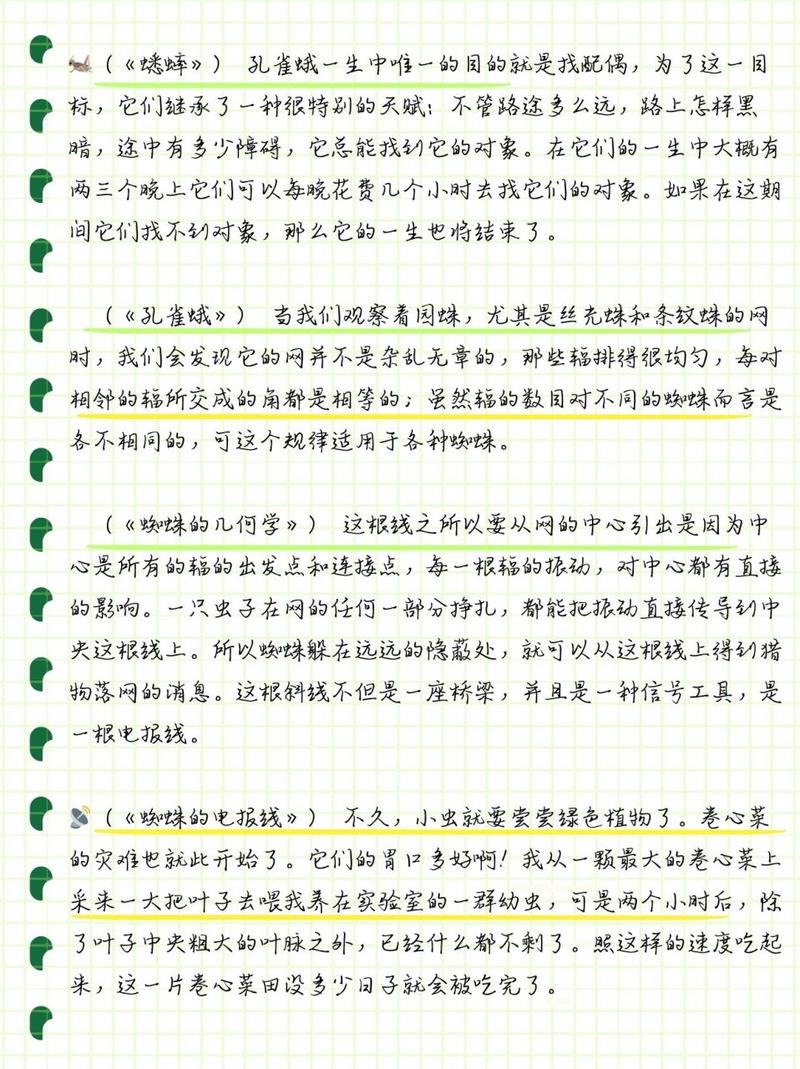 （《蟋蟀》） 孔雀蛾一生中唯一的目的就是找配偶，为了这一目
标，它们继承了一种很特别的天赋：不管路途多么远，路上怎样黑
暗，途中有多少障碍，它总能找到它的对象。在它们的一生中大概有
两三个晚上它们可以每晚花费几个小时去找它们的对象。如果在这期
间它们找不到对象，那么它的一生也将结束了。
（《孔雀蛾》） 当我们观察着园蛛，尤其是丝光蛛和条纹蛛的网
时，我们会发现它的网并不是杂乱无章的，那些辐排得很均匀，每对
相邻的辐所交成的角都是相等的；虽然辐的数目对不同的蜘蛛而言是
各不相同的，可这个规律适用于各种蜘蛛。
（《蜘蛛的几何学》） 这根线之所以要从网的中心引出是因为中
心是所有的辐的出发点和连接点，每一根辐的振动，对中心都有直接
的影响。一只虫子在网的任何一部分挣扎，都能把振动直接传导到中
央这根线上。所以蜘蛛躲在远远的隐蔽处，就可以从这根线上得到猎
物落网的消息。这根斜线不但是一座桥梁，并且是一种信号工具，是
一根电报线。
（《蜘蛛的电报线》） 不久，小虫就要尝尝绿色植物了。卷心菜
的灾难也就此开始了。它们的胃口多好啊！我从一颗最大的卷心菜上
采来一大把叶子去喂我养在实验室的一群幼虫，可是两个小时后，除
了叶子中央粗大的叶脉之外，已经什么都不剩了。照这样的速度吃起
来，这一片卷心菜田没多少日子就会被吃完了。